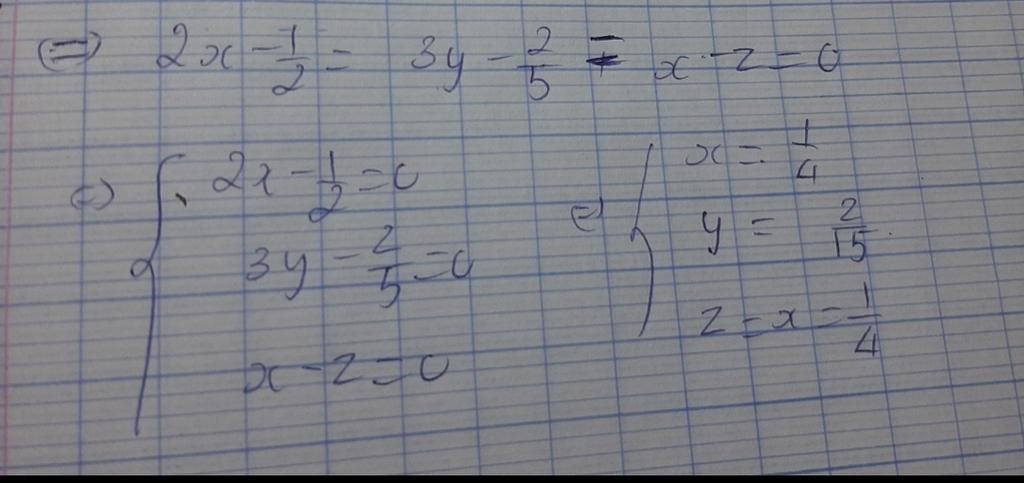 ⇔ 2x - 1/2 = 3y - 2/5 = x - z = 0
⇔ { 2x - 1/2 = 0
3y - 2/5 = 0
x - z = 0
⇔ { x = 1/4
y = 2/15
z = x = 1/4